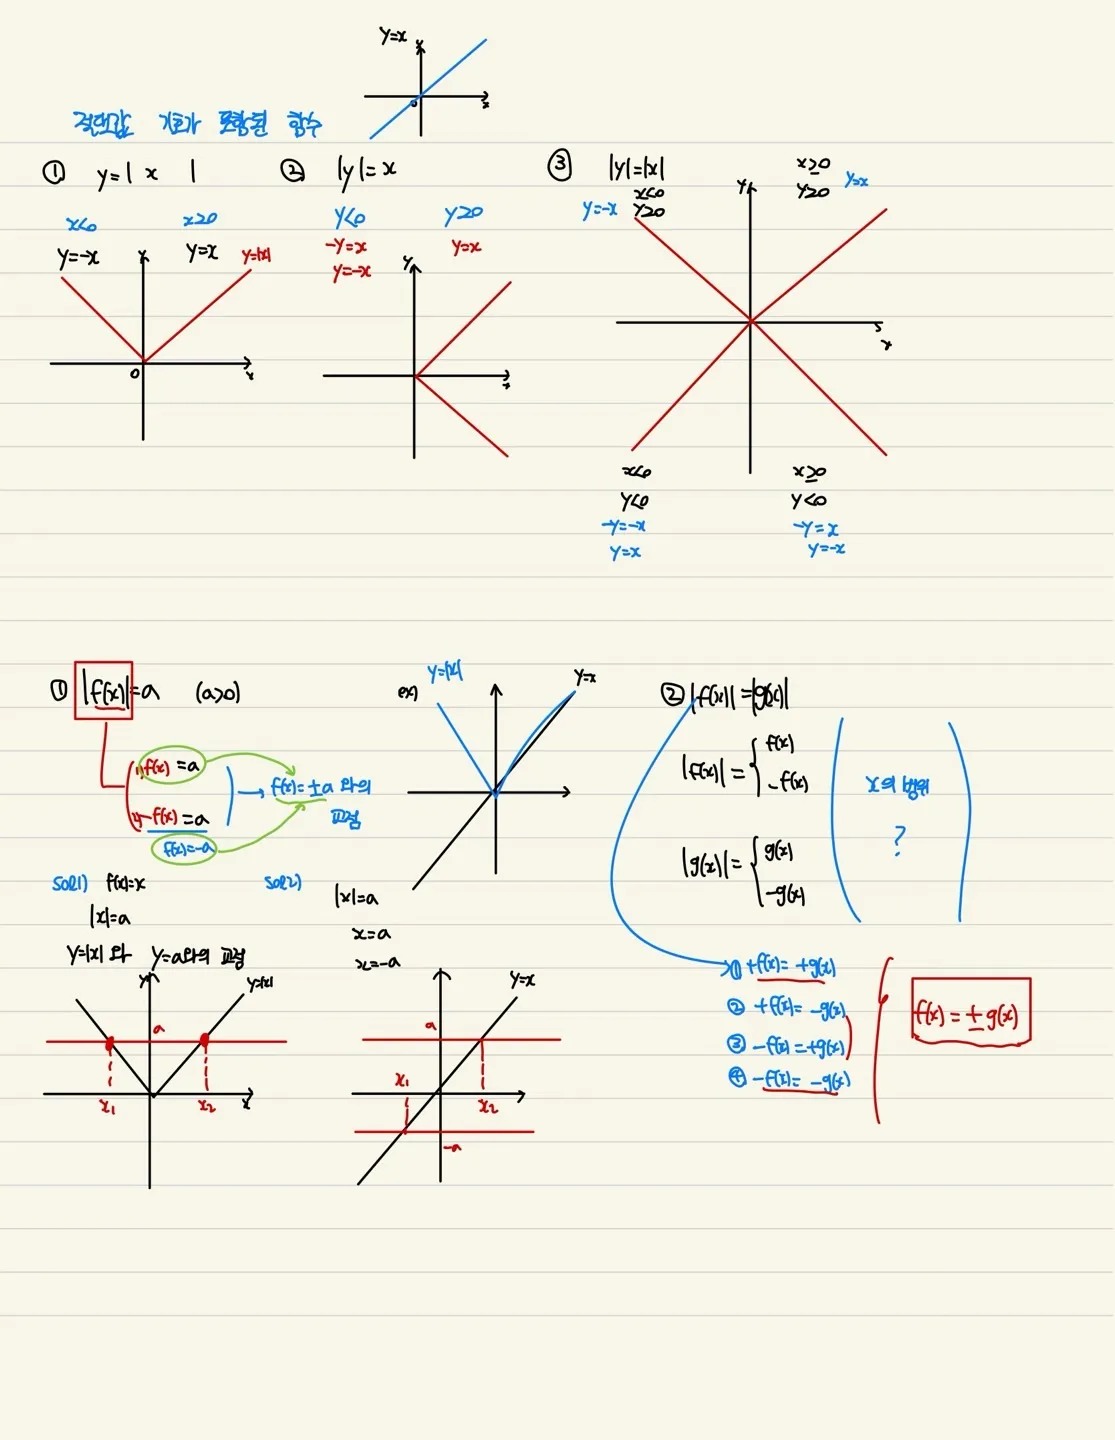 y=x
x
0
x
절댓값 기호가 포함된 함수
① y=| x |
x<0 x≥0
y=-x y y=x y=|x|
0 x
② |y|=x
y<0 y≥0
-y=x y=x
y=-x
y
x
③ |y|=|x|
x<0 x≥0
y=-x y≥0 y y≥0 y=x
x
x<0 x≥0
y<0 y<0
-y=-x -y=x
y=x y=-x
① |f(x)|=a (a>0)
1) f(x)=a
f(x)=±a 와의
교점
2) -f(x)=a
f(x)=-a
ex) y=|x| y=x
sol1) f(x)=x
|x|=a
y=|x| 와 y=a와의 교점
y y=|x|
a
x₁ x₂ x
sol2)
|x|=a
x=a
x=-a
y=x
a
x₁ x₂
-a
② |f(x)|=|g(x)|
|f(x)|= { f(x)
-f(x)
x의 범위
?
|g(x)|= { g(x)
-g(x)
① +f(x)= +g(x)
② +f(x)= -g(x)
③ -f(x)=+g(x)
④ -f(x)= -g(x)
f(x)=±g(x)